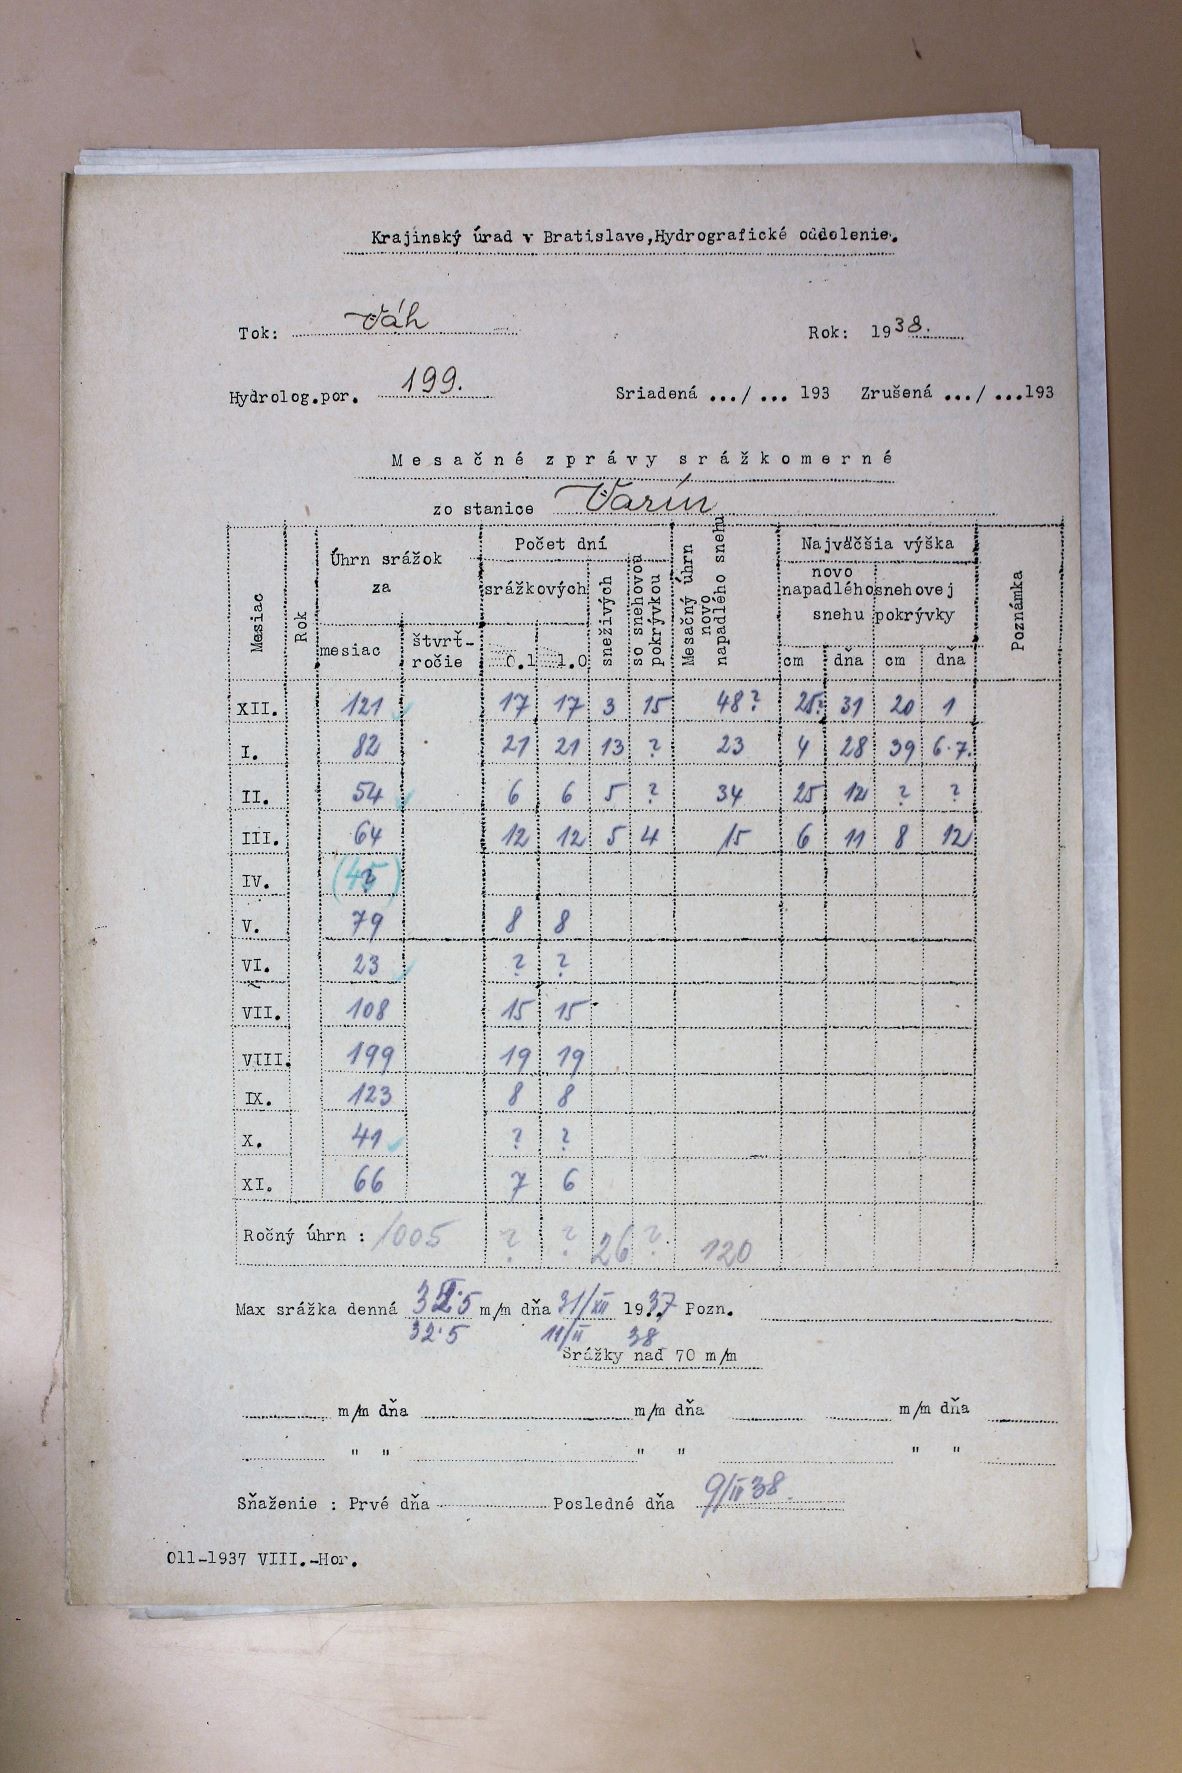 Krajinský úrad v Bratislave, Hydrografické oddelenie.
Tok: Váh Rok: 1938.
Hydrolog.por. 199. Sriadená .../ ... 193 Zrušená .../ ...193
Mesačné zprávy srážkomerné
zo stanice Varín
Mesiac Rok Úhrn srážok za Počet dní Mesačný úhrn novo napadlého snehu Najväčšia výška Poznámka
mesiac štvrť-ročie srážkových snežívých so snehovou pokrývkou novo napadlého snehu snehovej pokrývky
0.1 1.0 cm dňa cm dňa
XII. 121 17 17 3 15 48? 25? 31 20 1
I. 82 21 21 13 ? 23 4 28 39 6.7.
II. 54 6 6 5 ? 34 25 12 ? ?
III. 64 12 12 5 4 15 6 11 8 12
IV. (45) ?
V. 79 8 8
VI. 23 ? ?
VII. 108 15 15
VIII. 199 19 19
IX. 123 8 8
X. 41 ? ?
XI. 66 7 6
Ročný úhrn : 1005 ? ? 26 ? 120
Max srážka denná 32.5 m/m dňa 31/XII 1937 Pozn.
32.5 11/II 38
Srážky nad 70 m/m
m/m dňa m/m dňa m/m dňa
" " " " " "
Sňaženie : Prvé dňa Posledné dňa 9/III 38.
011-1937 VIII.-Hor.